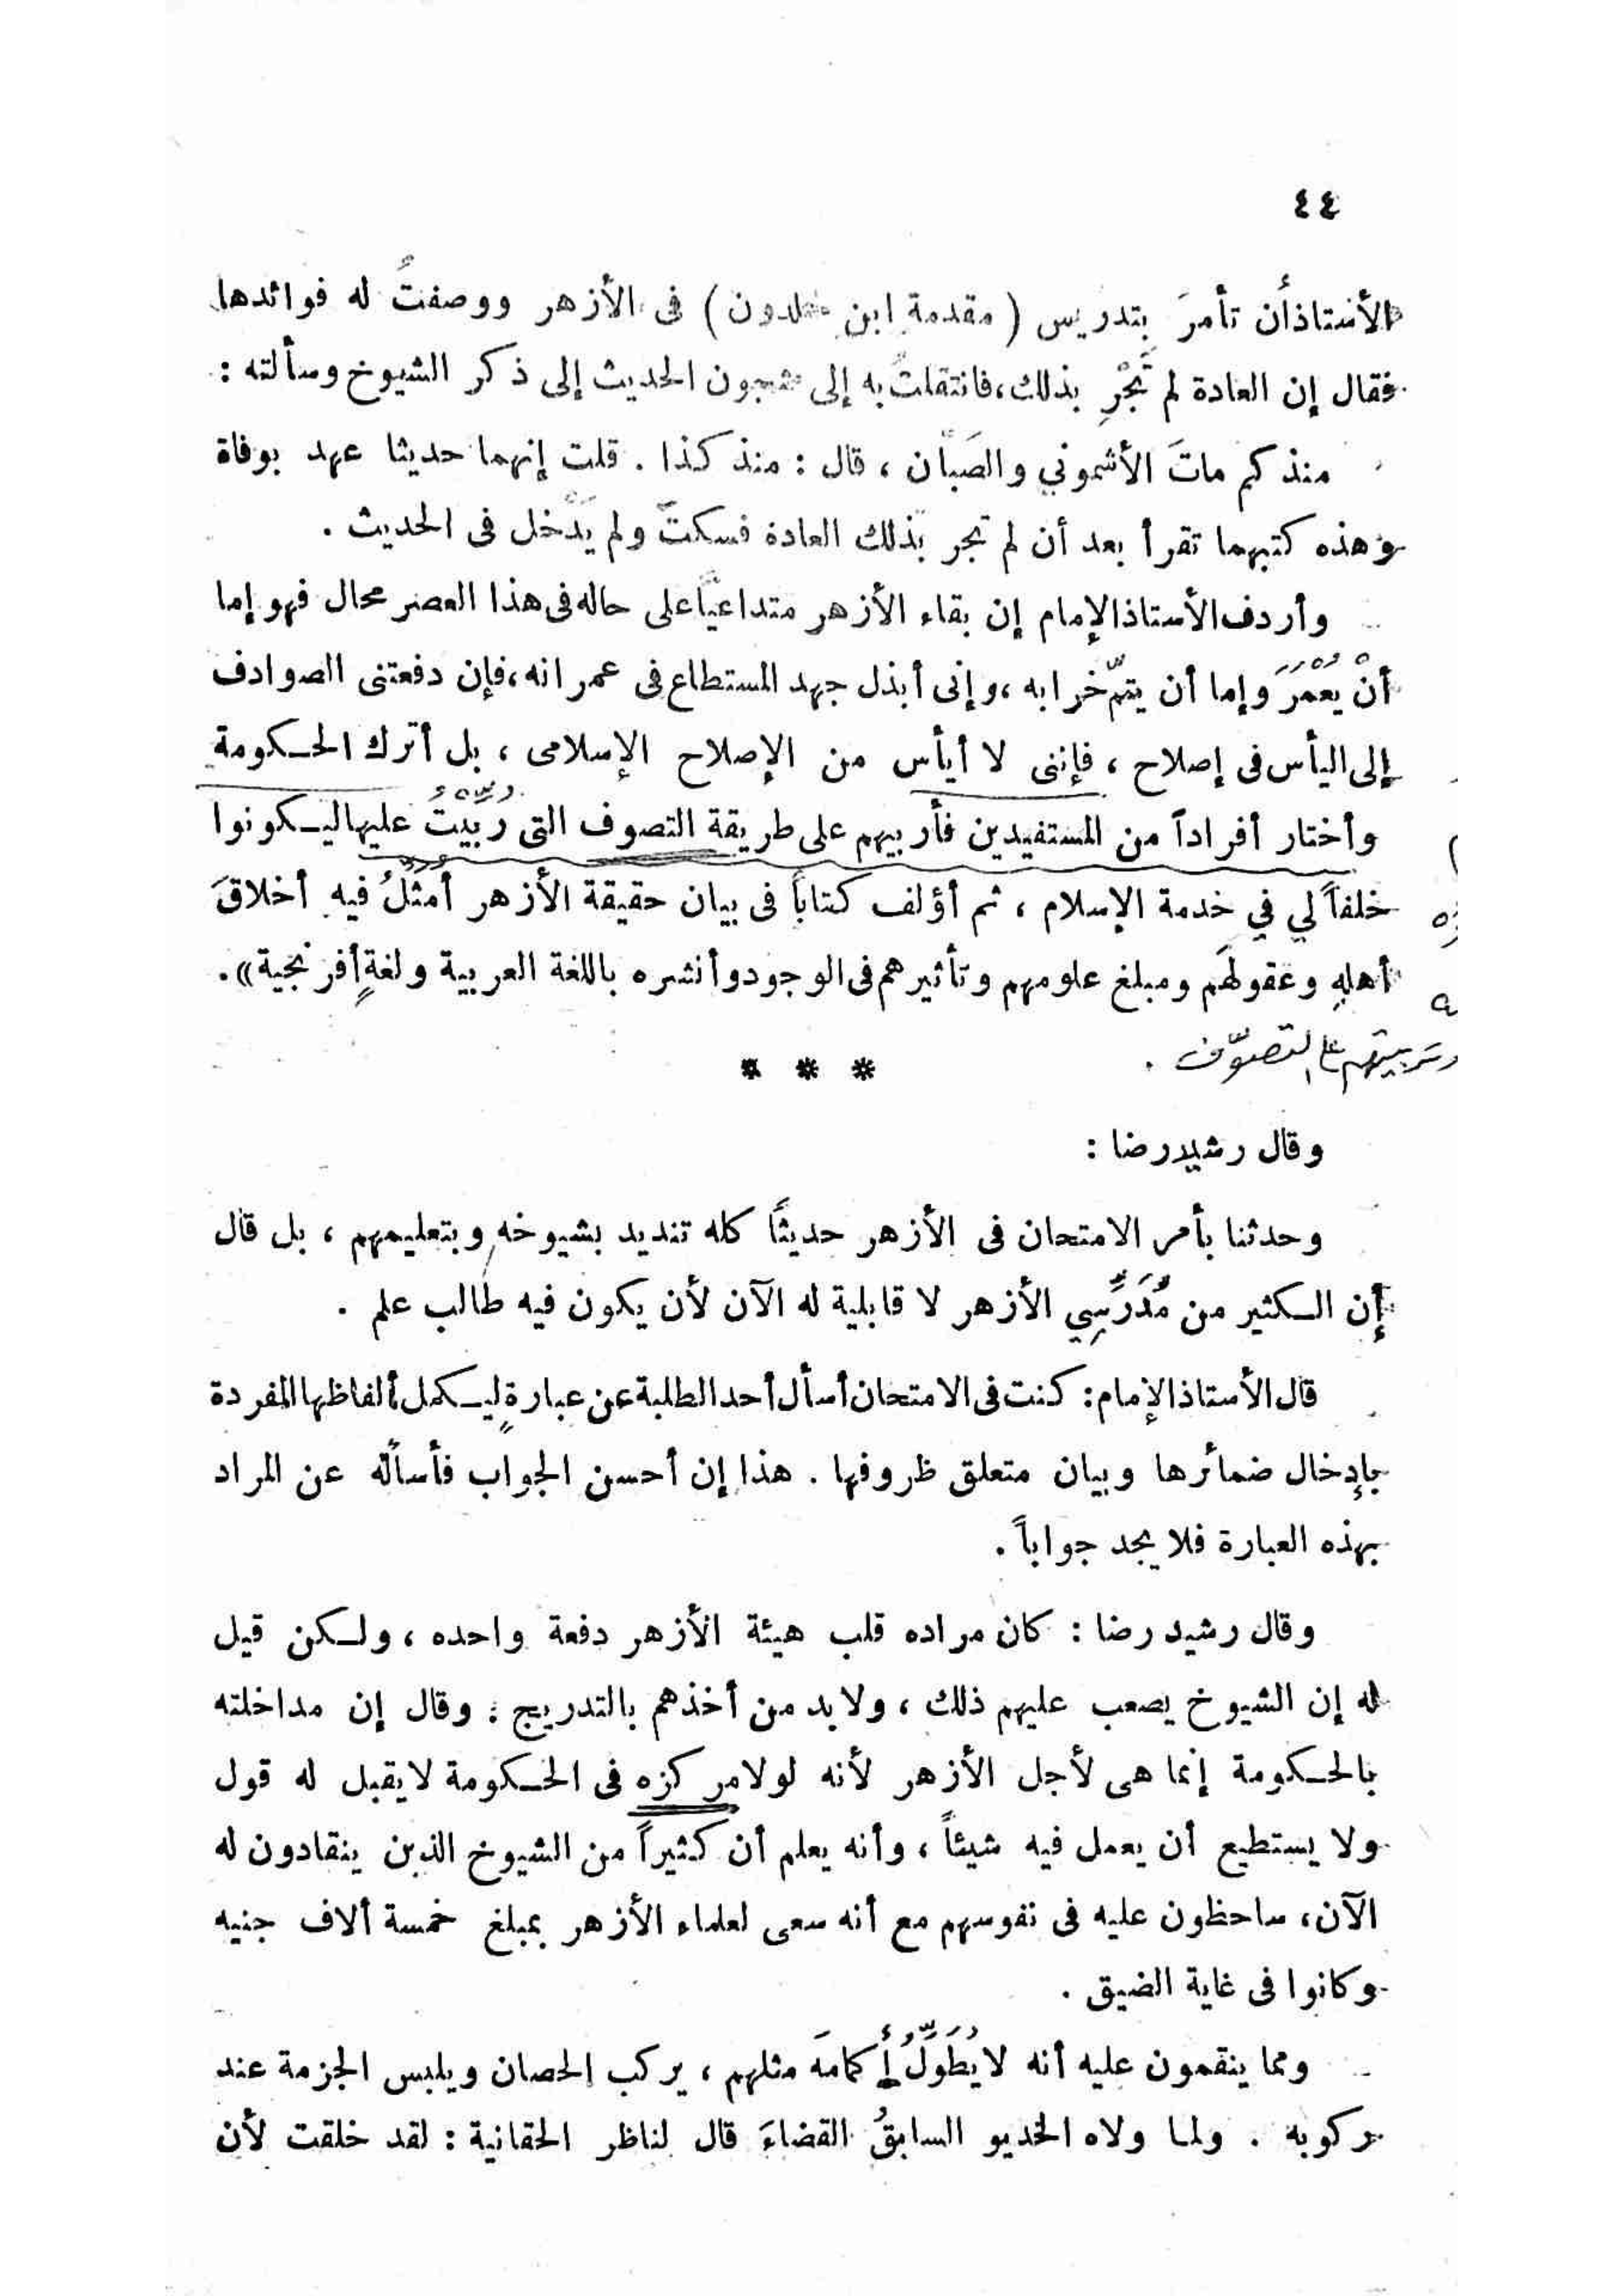 ٤٤
الأستاذ أن تأمرَ بتدريس (مقدمة ابن خلدون) فى الأزهر ووصفتُ له فوائدها
فقال إن العادة لم تَجْرِ بذلك، فانتقلتُ به إلى شجون الحديث إلى ذكر الشيوخ وسألته :
منذ كم ماتَ الأشموني والصَبَّان ، قال : منذ كذا . قلت إنهما حديثا عهد بوفاة
وهذه كتبهما تقرأ بعد أن لم تجر بذلك العادة فسكتَ ولم يَدْخل فى الحديث .
وأردف الأستاذ الإمام إن بقاء الأزهر متداعياً على حاله فى هذا العصر محال فهو إما
أنْ يُعْمَرَ وإما أن يتمّ خرابه ، وإنى أبذل جهد المستطاع فى عمرانه، فإن دفعتنى الصوادف
إلى اليأس فى إصلاح ، فإننى لا أيأس من الإصلاح الإسلامى ، بل أترك الحكومة
وأختار أفراداً من المستفيدين فأربيهم على طريقة التصوف التى رُبِّيْتُ عليها ليكونوا
خلفاً لي في خدمة الإسلام ، ثم أؤلف كتاباً فى بيان حقيقة الأزهر أُمَثِّلُ فيه أخلاقَ
أهلهِ وعقولهَم ومبلغ علومهم وتأثيرهم فى الوجود وأنشره باللغة العربية ولغةٍ أفرنجية».
وتربيتهم على التصوّف .
* * *
وقال رشيد رضا :
وحدثنا بأمر الامتحان فى الأزهر حديثاً كله تنديد بشيوخه وبتعليمهم ، بل قال
إن الكثير من مُدَرِّسِي الأزهر لا قابلية له الآن لأن يكون فيه طالب علم .
قال الأستاذ الإمام: كنت فى الامتحان أسأل أحد الطلبة عن عبارةٍ ليكمل ألفاظها المفردة
بإدخال ضمائرها وبيان متعلق ظروفها . هذا إن أحسن الجواب فأسألُه عن المراد
بهذه العبارة فلا يجد جواباً .
وقال رشيد رضا : كان مراده قلب هيئة الأزهر دفعة واحده ، ولكن قيل
له إن الشيوخ يصعب عليهم ذلك ، ولابد من أخذهم بالتدريج : وقال إن مداخلته
بالحكومة إنما هى لأجل الأزهر لأنه لولا مركزه فى الحكومة لا يقبل له قول
ولا يستطيع أن يعمل فيه شيئاً ، وأنه يعلم أن كثيراً من الشيوخ الذين ينقادون له
الآن، ساحظون عليه فى نفوسهم مع أنه سعى لعلماء الأزهر بمبلغ خمسة ألاف جنيه
وكانوا فى غاية الضيق .
ومما ينقمون عليه أنه لا يُطَوِّلُ أكمامَه مثلهم ، يركب الحصان ويلبس الجزمة عند
ركوبه . ولما ولاه الخديو السابقُ القضاءَ قال لناظر الحقانية : لقد خلقت لأن